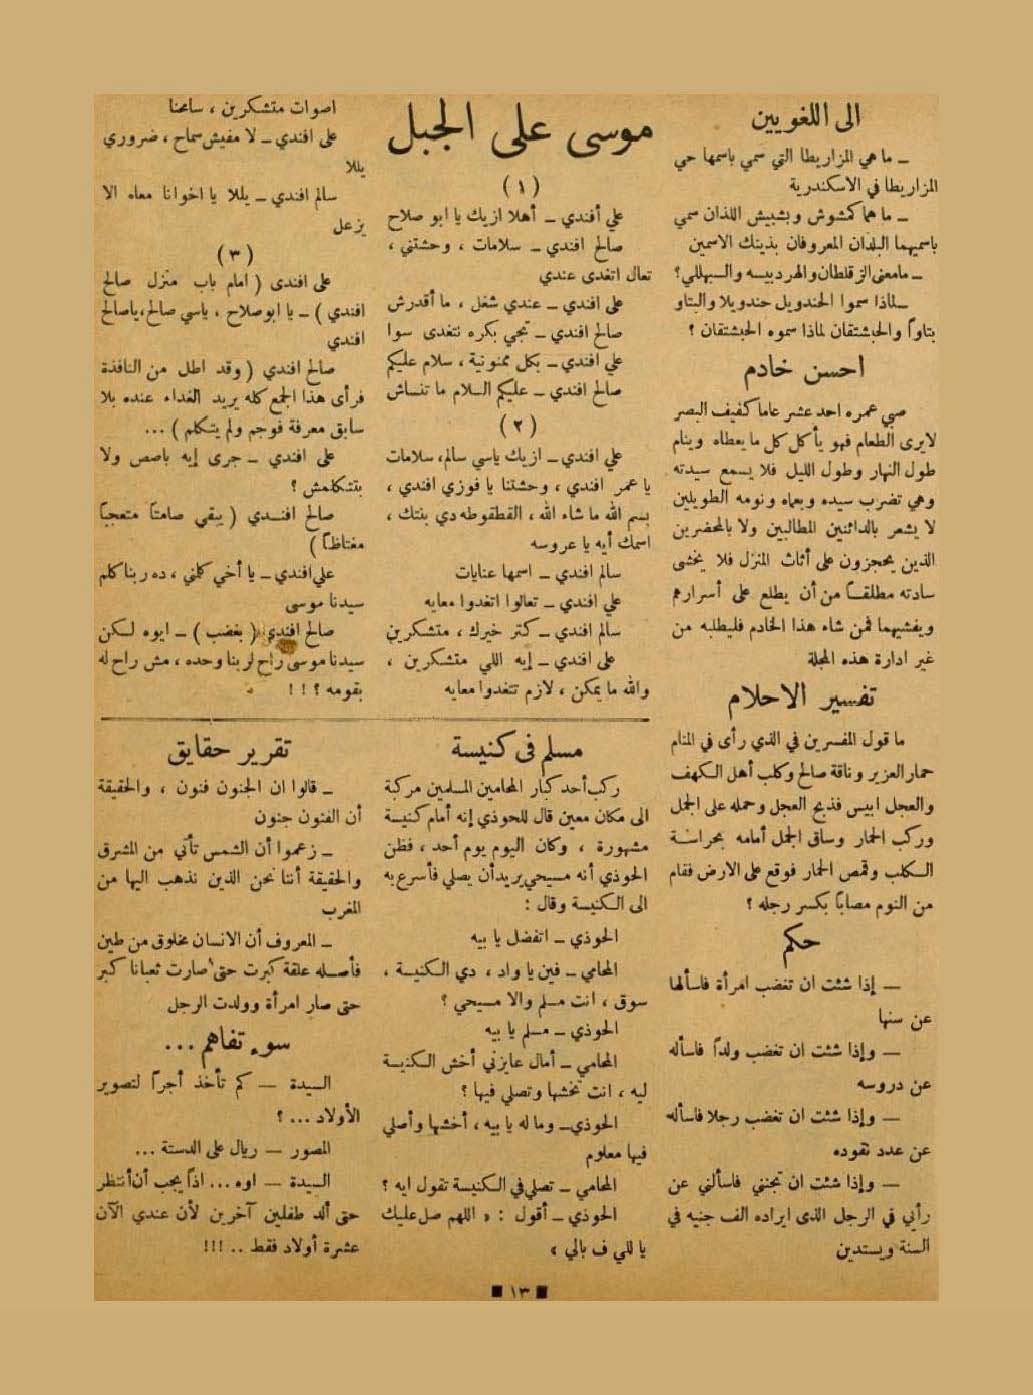 الى اللغويين
ــ ما هي المزاريطا التي سمي باسمها حي
المزاريطا في الاسكندرية
ــ ما هما كمشوش وبشبيش اللذان سمي
باسميهما البلدان المعروفان بذينك الاسمين
ــ مامعنى الزقلطان والهردبيسه والسبهللي؟
ــ لماذا سموا الحندويل حندويلا والبتاو
بتاواً والحبشتقان لماذا سموه الحبشتقان ؟
احسن خادم
صبي عمره احد عشر عاما كفيف البصر
لايرى الطعام فهو يأكل كل ما يعطاه وينام
طول النهار وطول الليل فلا يسمع سيدته
وهي تضرب سيده وبعماه ونومه الطويلين
لا يشعر بالدائنين المطالبين ولا بالمحضرين
الذين يحجزون على أثاث المنزل فلا يخشى
سادته مطلقــاً من أن يطلع على أسرارهم
ويفشيهما فمن شاء هذا الخادم فليطلبه من
غير ادارة هذه المجلة
تفسير الاحلام
ما قول المفسرين في الذي رأى في المنام
حمار العزير وناقة صالح وكلب أهل الكهف
والعجل ابيس فذبح العجل وحمله على الجمل
وركب الحمار وساق الجمل أمامه بحراسة
الكلب وقمص الحمار فوقع على الارض فقام
من النوم مصاباً بكسر رجله ؟
حكم
ــ إذا شئت ان تغضب امرأة فاسألها
عن سنها
ــ وإذا شئت ان تغضب ولداً فاسأله
عن دروسه
ــ وإذا شئت ان تغضب رجلا فاسأله
عن عدد نقوده
ــ وإذا شئت ان تجنني فاسألني عن
رأيي في الرجل الذى ايراده الف جنيه في
السنة ويستدين
موسى على الجبل
( ١ )
علي أفندي ــ أهلا ازيك يا ابو صلاح
صالح افندي ــ سلامات ، وحشتني ،
تعال اتغدى عندي
على افندي ــ عندي شغل ، ما أقدرش
صالح افندي ــ تيجي بكره نتغدى سوا
علي افندي ــ بكل ممنونية ، سلام عليكم
صالح افندي ــ عليكم السلام ما تنساش
( ٢ )
علي افندي ــ ازيك ياسي سالم، سلامات
يا عمر افندي ، وحشتنا يا فوزي افندي ،
بسم الله ما شاء الله ، القطقوطه دي بنتك ،
اسمك أيه يا عروسه
سالم افندي ــ اسمها عنايات
علي افندي ــ تعالوا اتغدوا معايه
سالم افندي ــ كتر خيرك ، متشكرين
على افندي ــ إيه اللي متشكرين ،
والله ما يمكن ، لازم تتغدوا معايه
اصوات متشكرين ، سامحنا
على افندي ــ لا مفيش سماح ، ضروري
يللا
سالم افندي ــ يللا يا اخوانا معاه الا
يزعل
( ٣ )
على افندى ( امام باب منزل صالح
افندي ) ــ يا ابوصلاح ، ياسي صالح، ياصالح
افندي
صالح افندي ( وقد اطل من النافذة
فرأى هذا الجمع كله يريد الغداء عنده بلا
سابق معرفة فوجم ولم يتكلم ) ...
على افندي ــ جرى إيه باصص ولا
بتتكلمش ؟
صالح افندي ( يبقي صامتاً متعجباً
مغتاظاً )
علي افندي ــ يا أخي كلمني ، ده ربنا كلم
سيدنا موسى
صالح افندي ( بغضب ) ــ ايوه لكن
سيدنا موسى راح لربنا وحده ، مش راح له
بقومه ؟ ! ! !
مسلم فى كنيسة
ركب أحد كبار المحامين المسلمين مركبة
الى مكان معين قال للحوذي إنه أمام كنيسة
مشهورة ، وكان اليوم يوم أحد ، فظن
الحوذي أنه مسيحي يريد أن يصلي فأسرع به
الى الكنيسة وقال :
الحوذي ــ اتفضل يا بيه
المحامي ــ فين يا واد ، دي الكنيسة ،
سوق ، انت مسلم والا مسيحي ؟
الحوذي ــ مسلم يا بيه
المحامي ــ أمال عايزني أخش الكنيسة
ليه ، انت تخشها وتصلي فيها ؟
الحوذي ــ وما له يا بيه ، أخشها وأصلي
فيها معلوم
المحامي ــ تصلي في الكنيسة تقول ايه ؟
الحوذي ــ أقول : « اللهم صل عليك
يا للي ف بالي »
تقرير حقايق
ــ قالوا ان الجنون فنون ، والحقيقة
أن الفنون جنون
ــ زعموا أن الشمس تأتي من المشرق
والحقيقة أننا نحن الذين نذهب اليها من
المغرب
ــ المعروف أن الانسان مخلوق من طين
فأصله علقة كبرت حتى صارت ثعبانا كبر
حتى صار امرأة وولدت الرجل
سوء تفاهم ...
السيدة ــ كم تأخذ أجراً لتصوير
الأولاد ... ؟
المصور ــ ريال على الدستة ...
السيدة ــ اوه ... اذاً يجب أن أنتظر
حتى ألد طفلين آخرين لأن عندي الآن
عشرة أولاد فقط .. !!!
■ ١٣ ■